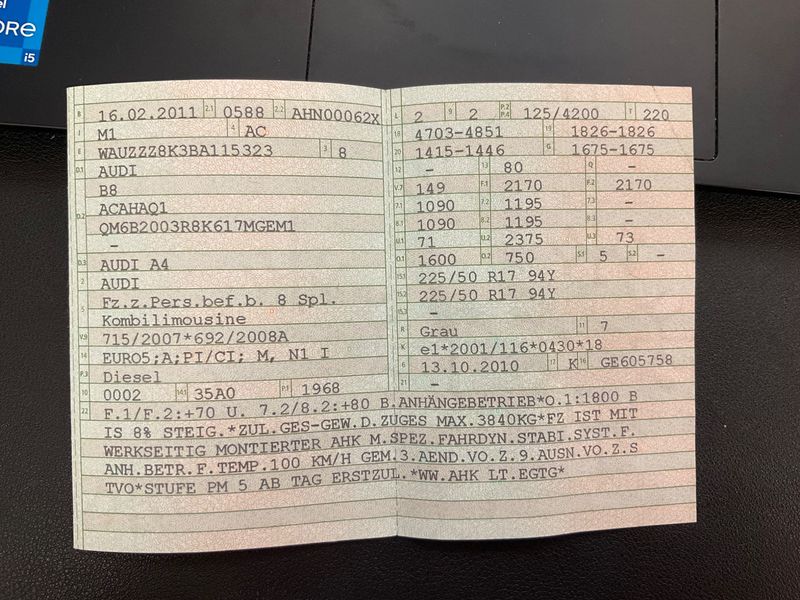 el
ORe
i5
B 16.02.2011 2.1 0588 2.2 AHN00062X
J M1 4 AC
E WAUZZZ8K3BA115323 3 8
D.1 AUDI
B8
D.2 ACAHAQ1
QM6B2003R8K617MGEM1
-
D.3 AUDI A4
2 AUDI
5 Fz.z.Pers.bef.b. 8 Spl.
Kombilimousine
V.9 715/2007*692/2008A
14 EURO5;A;PI/CI; M, N1 I
P.3 Diesel
10 0002 14.1 35A0 P.1 1968
L 2 9 2 P.2 P.4 125/4200 T 220
18 4703-4851 19 1826-1826
20 1415-1446 G 1675-1675
12 - 13 80 Q -
V.7 149 F.1 2170 F.2 2170
7.1 1090 7.2 1195 7.3 -
8.1 1090 8.2 1195 8.3 -
U.1 71 U.2 2375 U.3 73
O.1 1600 O.2 750 S.1 5 S.2 -
15.1 225/50 R17 94Y
15.2 225/50 R17 94Y
15.3 -
R Grau 11 7
K e1*2001/116*0430*18
6 13.10.2010 17 K 16 GE605758
21 -
22 F.1/F.2:+70 U. 7.2/8.2:+80 B.ANHÄNGEBETRIEB*O.1:1800 B
IS 8% STEIG.*ZUL.GES-GEW.D.ZUGES MAX.3840KG*FZ IST MIT
WERKSEITIG MONTIERTER AHK M.SPEZ.FAHRDYN.STABI.SYST.F.
ANH.BETR.F.TEMP.100 KM/H GEM.3.AEND.VO.Z.9.AUSN.VO.Z.S
TVO*STUFE PM 5 AB TAG ERSTZUL.*WW.AHK LT.EGTG*